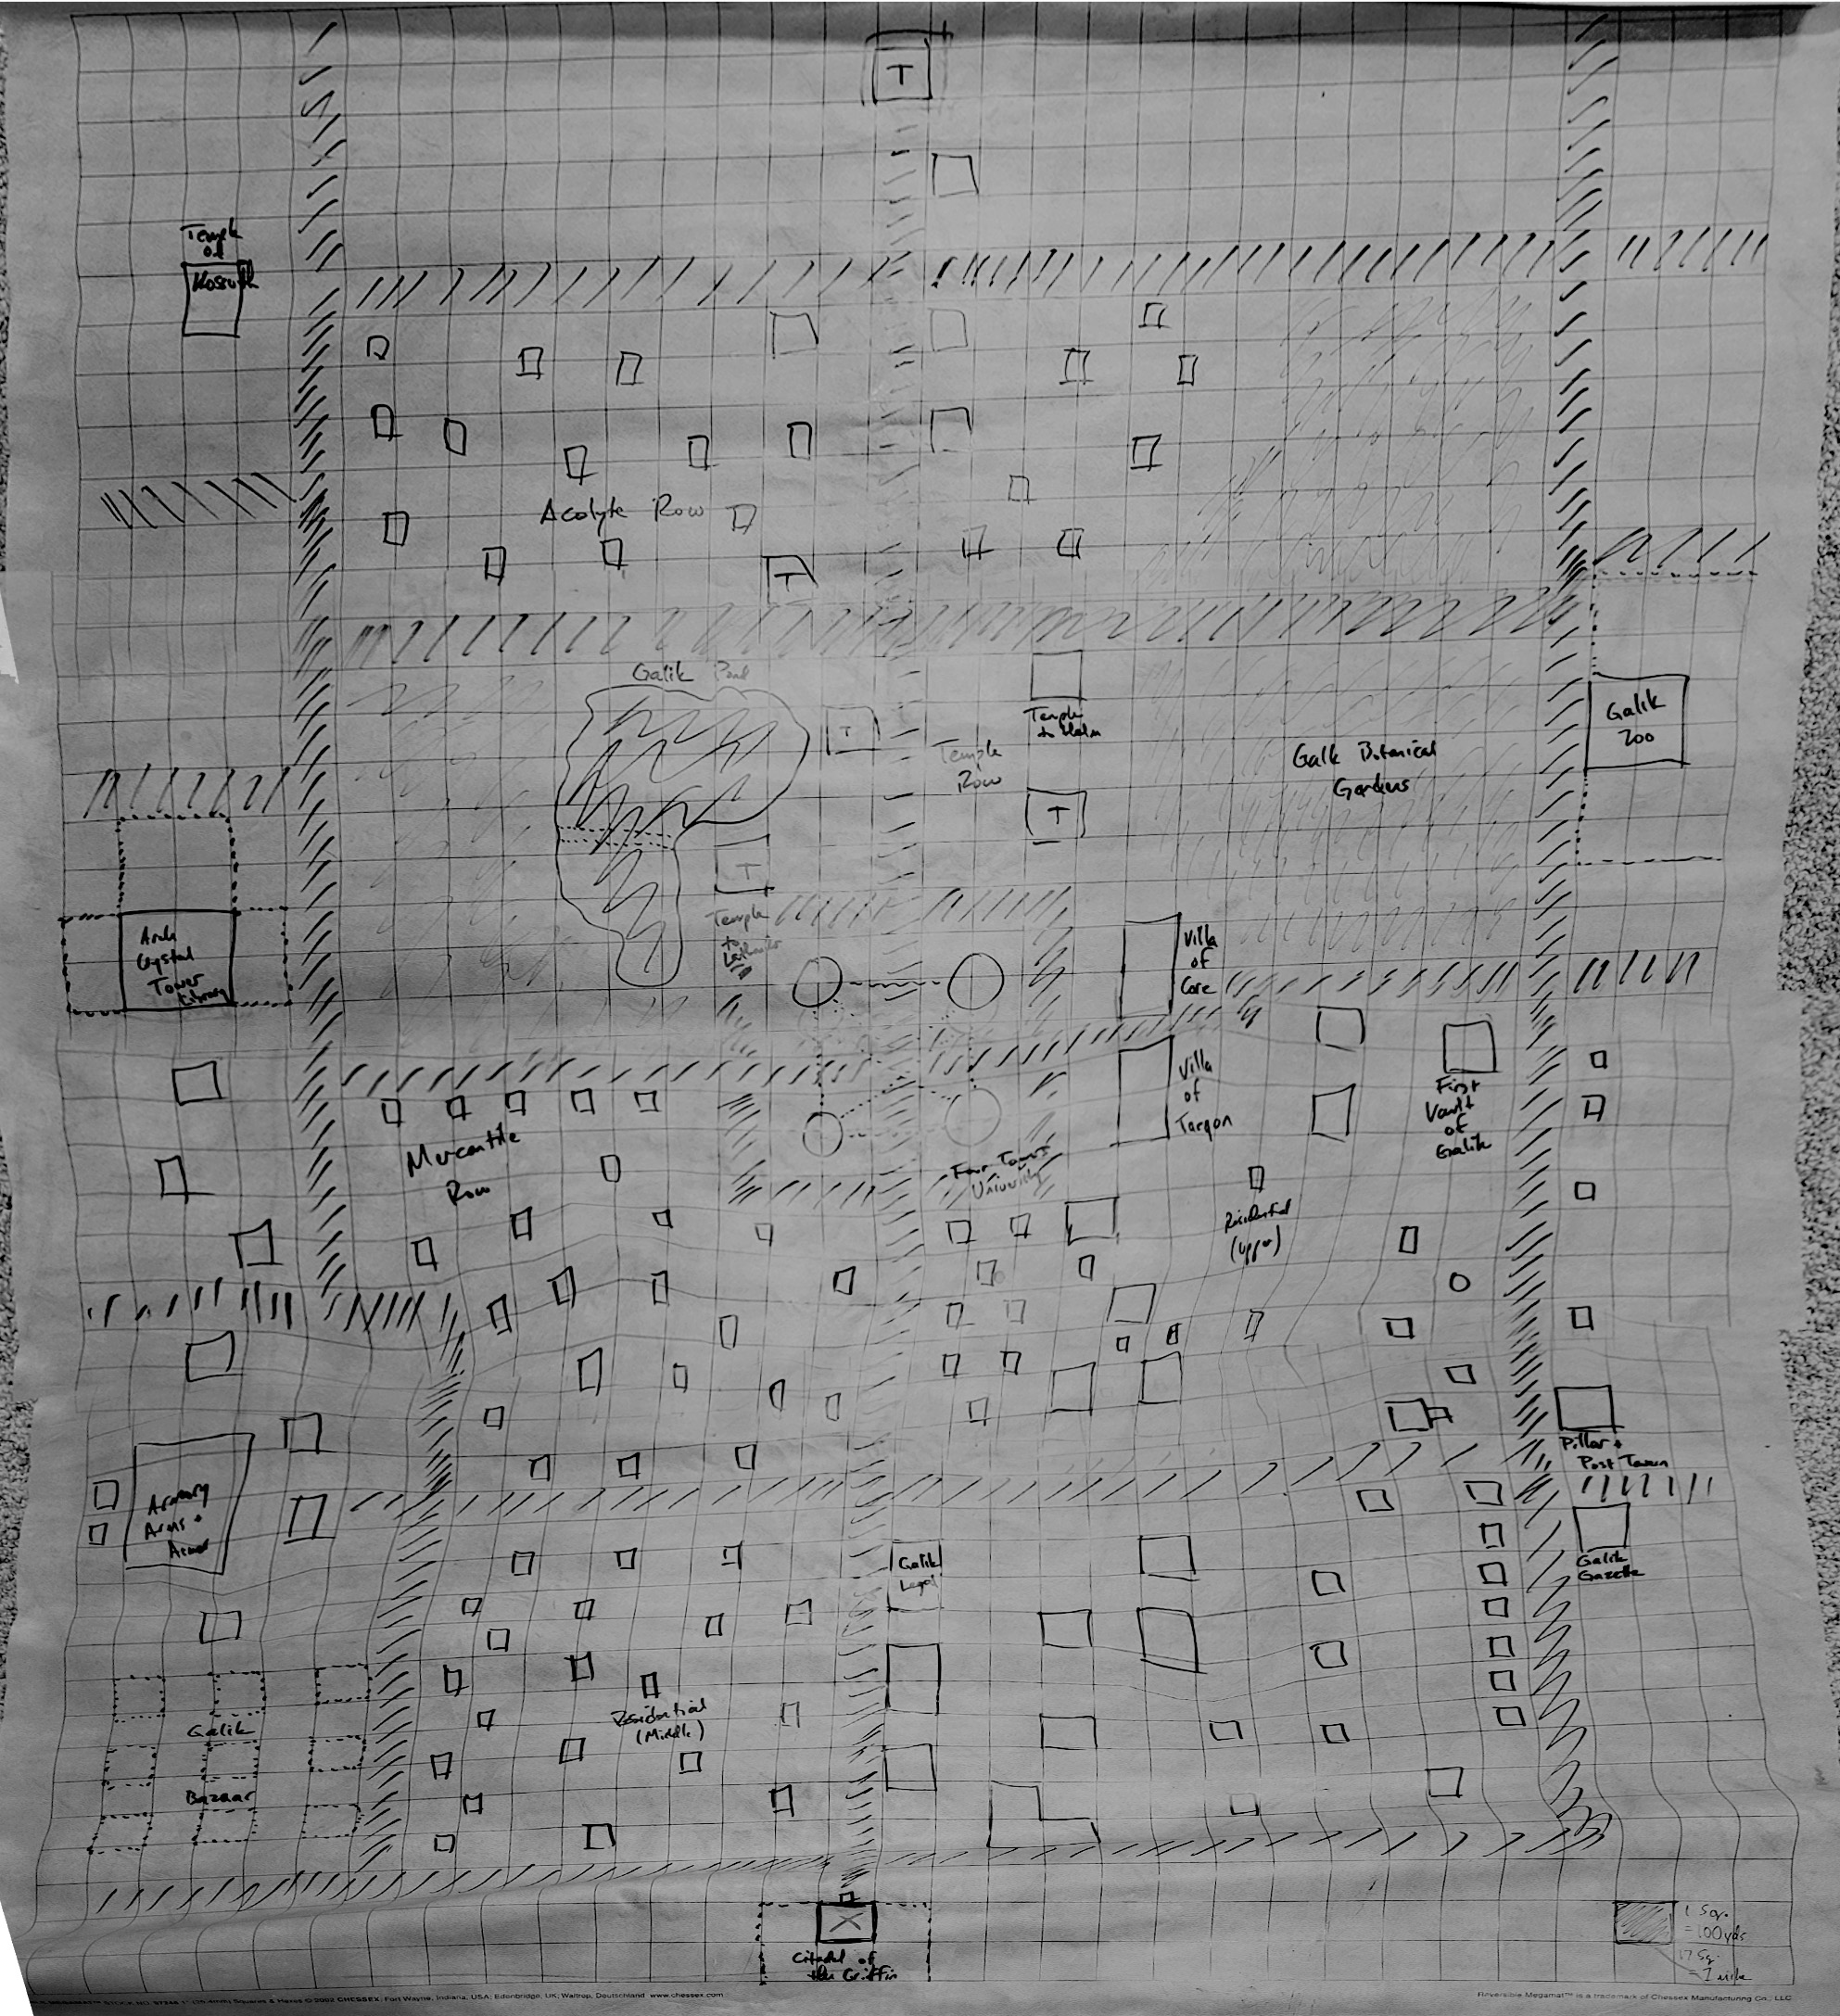 T
Temple
of
Kossuth
Acolyte Row
T
Galik Pond
T
Temple
Row
Temple
to Helm
T
Galik Botanical
Gardens
Galik
Zoo
T
Temple
to
Arch
Crystal
Tower
Library
Villa
of
Core
Villa
of
Targon
First
Vault
of
Galik
Mercantile
Row
Four Towers
University
Residential
(Upper)
Pillar +
Post Tavern
Armory
Arms +
Armor
Galik
Legal
Galik
Gazette
Residential
(Middle)
Galik
Bazaar
Citadel of
the Griffin
1 Sqr.
= 100 yds
17 Sq.
= 1 mile
Squares & Hexes © 2002 CHESSEX, Fort Wayne, Indiana, USA; Edonbridge, UK; Waltrop, Deutschland www.chessex.com
Reversible Megamat™ is a trademark of Chessex Manufacturing Co., LLC